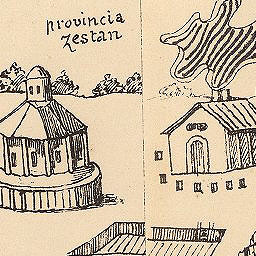 provincia
zestan